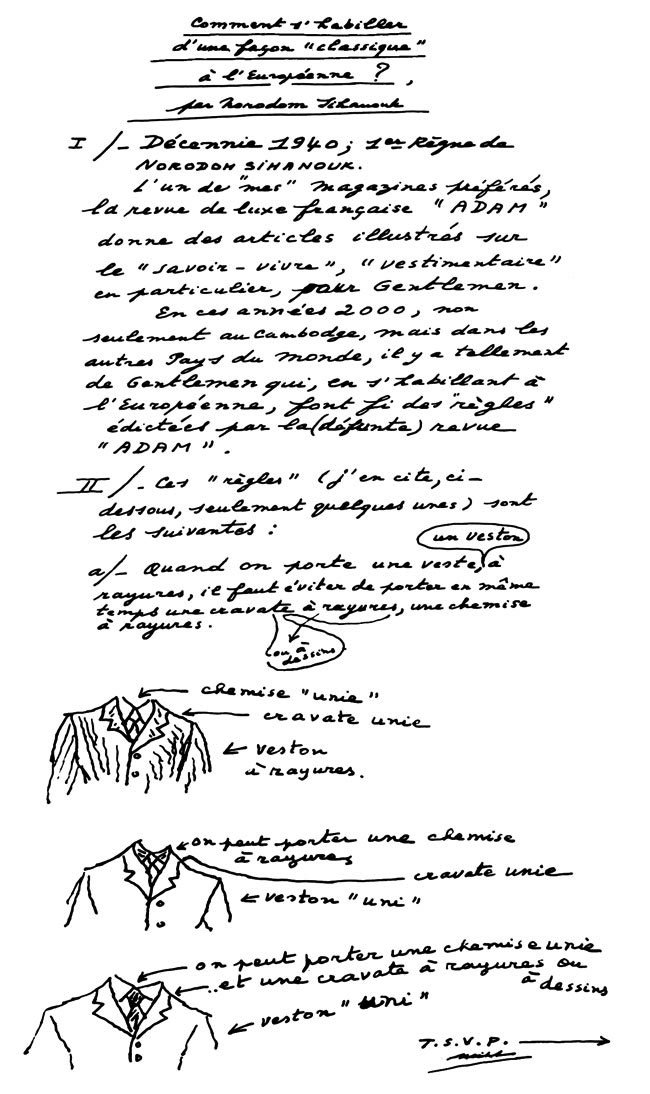 Comment s'habiller
d'une façon "classique"
à l'Européenne ? ,
par Norodom Sihanouk
I /- Décennie 1940 ; 1er Règne de
NORODOM SIHANOUK.
L'un de "mes" magazines préférés,
la revue de luxe française "ADAM"
donne des articles illustrés sur
le "savoir-vivre", "vestimentaire"
en particulier, pour Gentlemen.
En ces années 2000, non
seulement au Cambodge, mais dans les
autres Pays du monde, il y a tellement
de Gentlemen qui, en s'habillant à
l'Européenne, font fi des "règles"
édictées par la (défunte) revue
"ADAM".
II /- Ces "règles" (j'en cite, ci-
dessous, seulement quelques unes) sont
les suivantes :
un veston
a/- Quand on porte une veste, à
rayures, il faut éviter de porter en même
temps une cravate à rayures, une chemise
à rayures.
ou à
dessins
chemise "unie"
cravate unie
veston
à rayures.
on peut porter une chemise
à rayures
cravate unie
veston "uni"
on peut porter une chemise unie
..et une cravate à rayures ou
à dessins
veston "uni"
T.S.V.P.